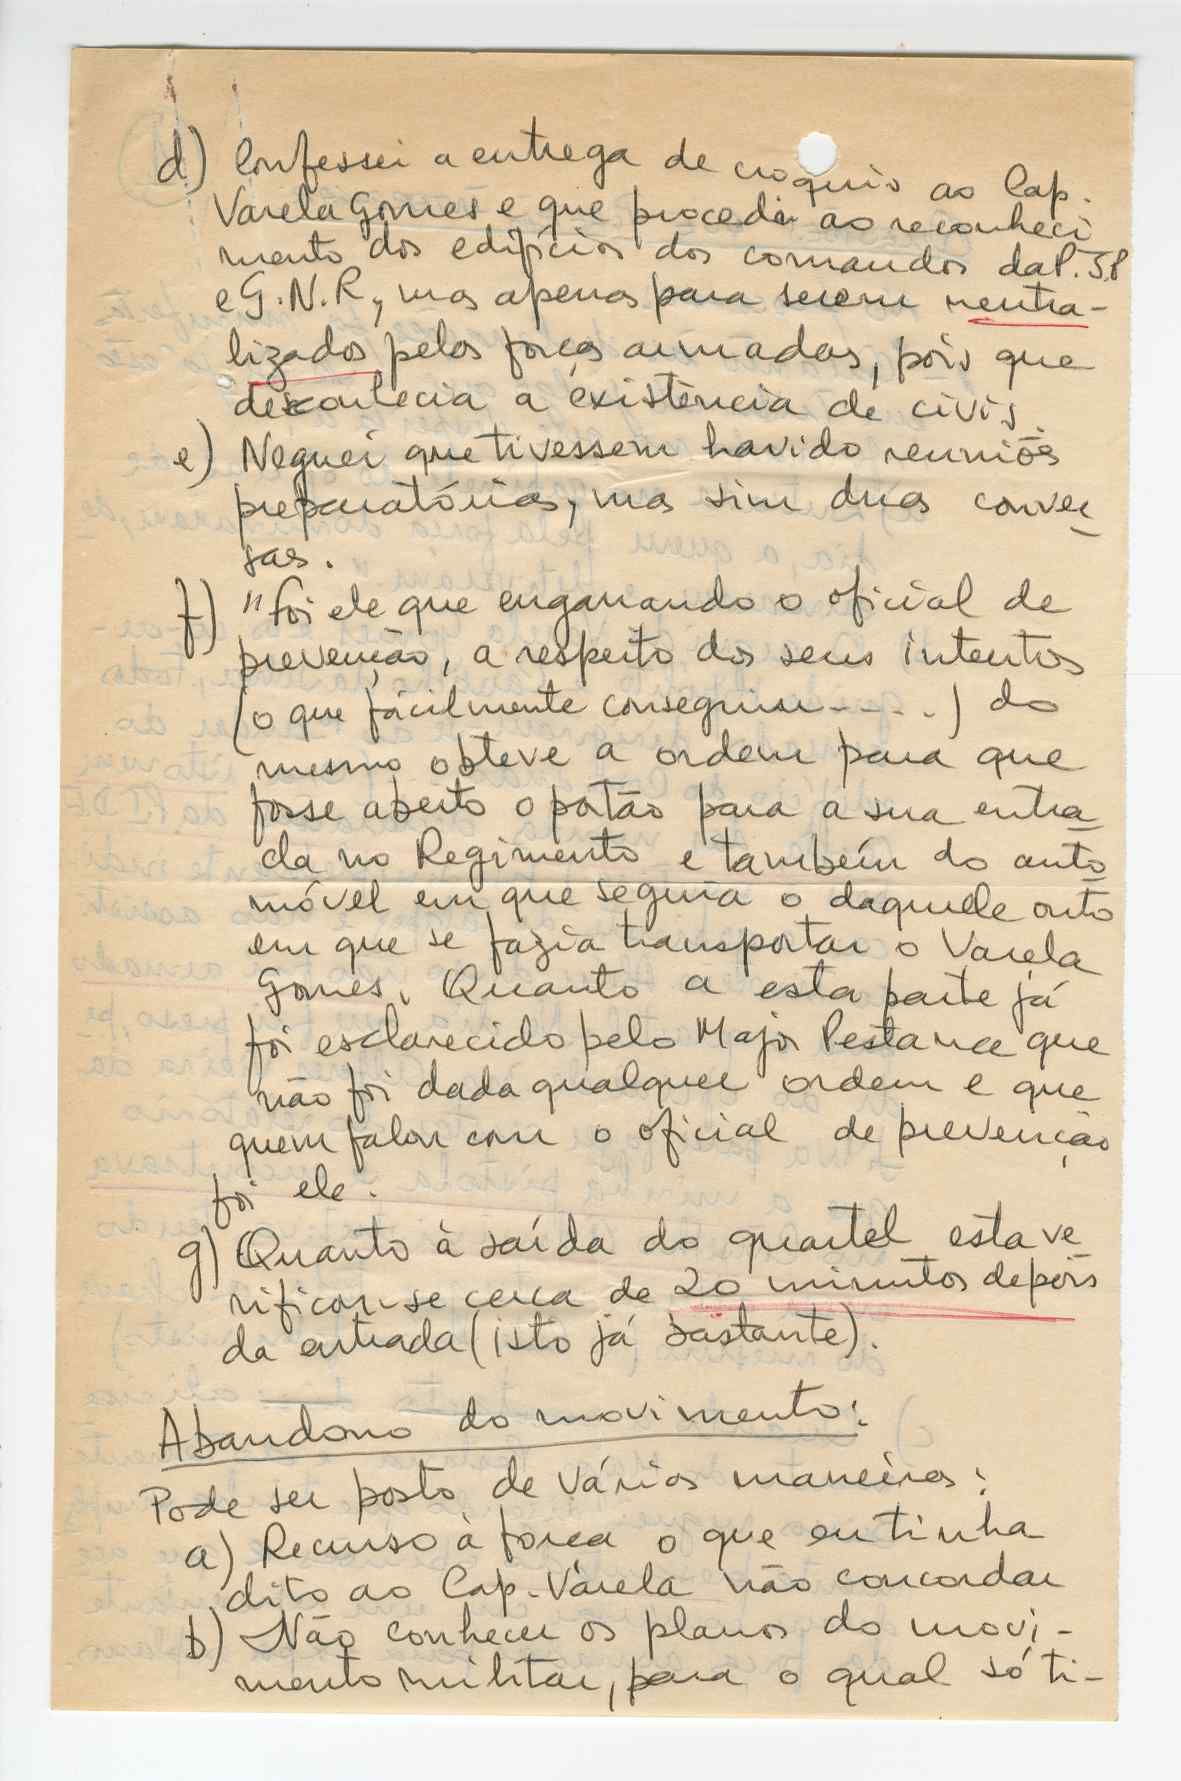 d) Confessei a entrega de croquis ao Cap.
Varela Gomes e que procedi ao reconheci
mento dos edifícios dos comandos da P.S.P
e G.N.R, mas apenas para serem neutra-
lizados pelas forças armadas, pois que
desconhecia a existência de civis.
e) Neguei que tivessem havido reuniões
preparatórias, mas sim duas conver
sas.
f) "Foi ele que enganando o oficial de
prevenção, a respeito dos seus intentos
(o que fácilmente conseguiu- - - . .) do
mesmo obteve a ordem para que
fosse aberto o portão para a sua entra
da no Regimento e também do auto
móvel em que seguia o daquele outo
em que se fazia transportar o Varela
Gomes. Quanto a esta parte já
foi esclarecido pelo Major Pestana que
não foi dada qualquer ordem e que
quem falou com o oficial de prevenção
foi ele.
g) Quanto à saída do quartel esta ve
rificou-se cerca de 20 minutos depois
da entrada (isto já bastante).
Abandono do movimento:
Pode ser posto de várias maneiras:
a) Recurso à força o que eu tinha
dito ao Cap. Varela não concordar
b) Não conhecer os planos do movi-
mento militar, para o qual só ti-